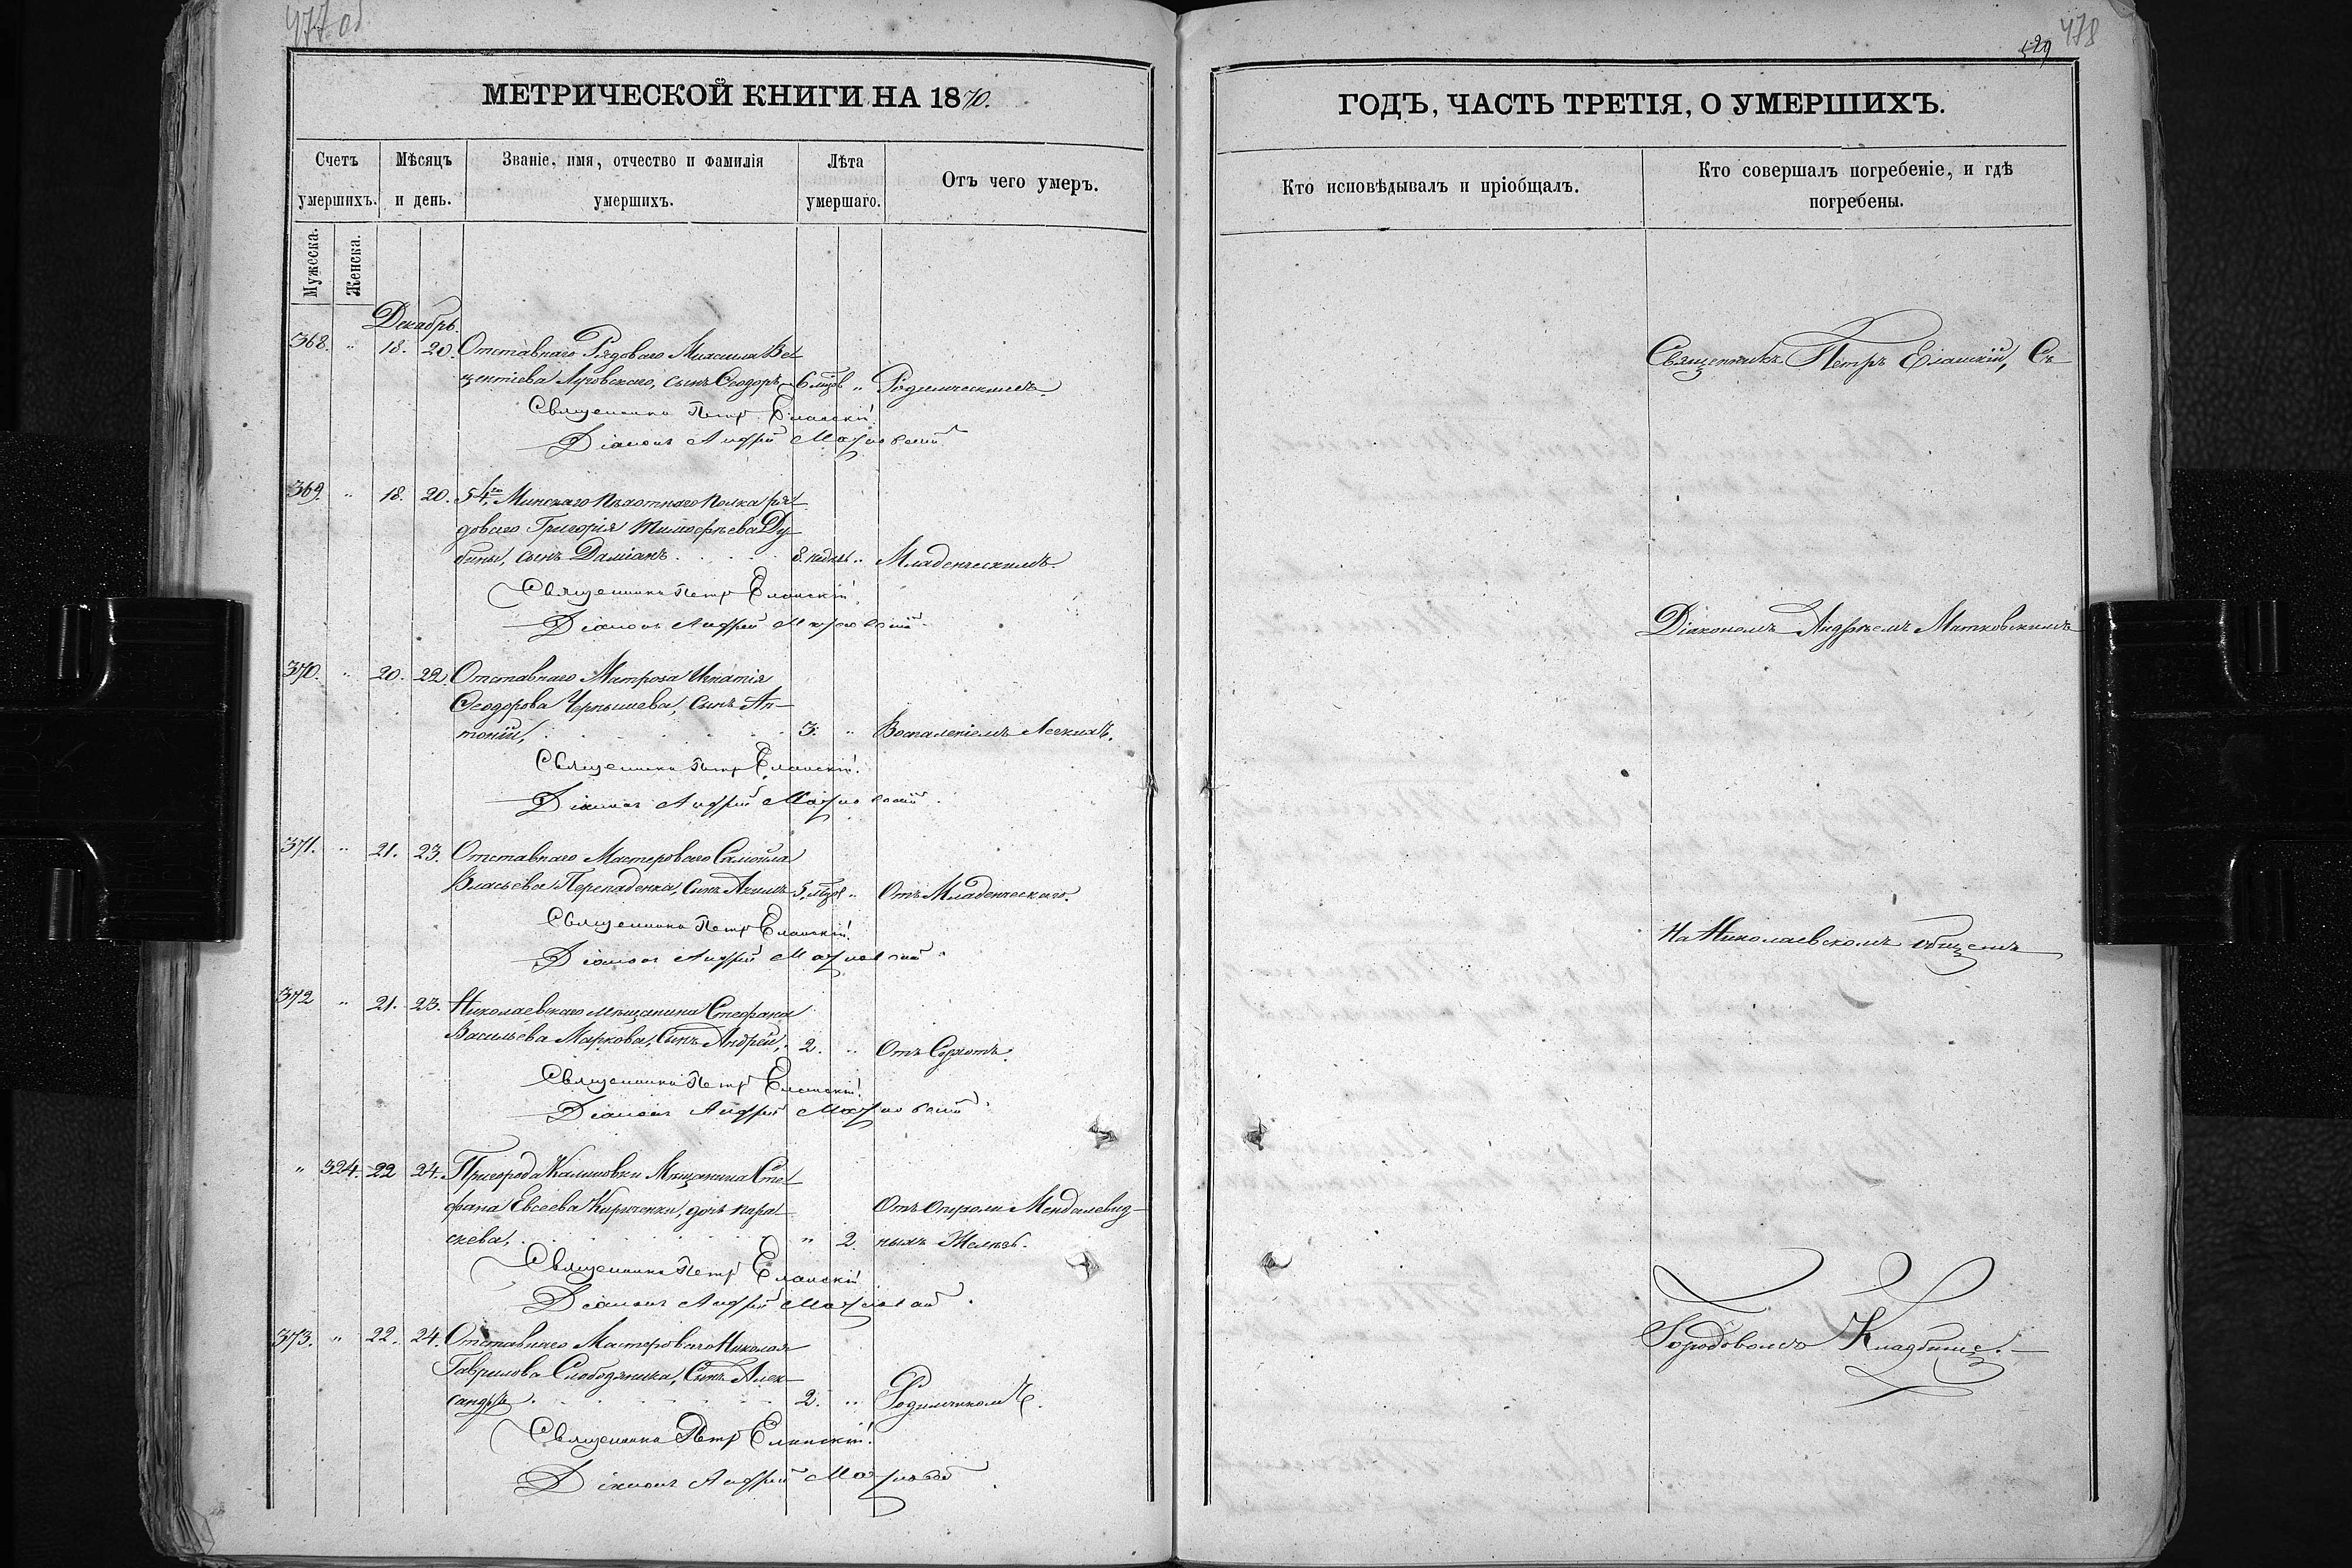 477 об
МЕТРИЧЕСКОЙ КНИГИ НА 1870.
Счетъ умершихъ.
Мѣсяцъ и день.
Званіе, имя, отчество и фамилія умершихъ.
Лѣта умершаго.
Отъ чего умеръ.
Мужеска.
Женска.
Декабрь.
368. " 18. 20. Отставнаго Рядоваго Михаила Ве-
центіева Луговскаго, сынъ Ѳеодоръ 6 мцов " Родимческимъ.
Священникъ Петръ Еланскій.
Діаконъ Андрей
369. " 18. 20. 54го Минскаго пѣхотнаго полка ря-
доваго Григорія Тимофѣева Ду-
бины, сынъ Даміанъ. 8. недѣль " Младенческимъ.
Священникъ Петръ Еланскій.
Діаконъ Андрей
370. " 20. 22. Отставнаго Матроза Игнатія
Ѳеодорова Чернышева, сынъ Ан-
тоній, 3. " Воспаленіемъ Легкихъ.
Священникъ Петръ Еланскій.
Діаконъ Андрей
371. " 21. 23. Отставнаго Мастероваго Самоила
Власьева Перепаденка, сынъ Акимъ 5. мцов " Отъ Младенческаго.
Священникъ Петръ Еланскій.
Діаконъ Андрей
372 " 21. 23. Николаевскаго мѣщанина Стефана
Васильева Маркова, Сынъ Андрей, 2. " Отъ
Священникъ Петръ Еланскій.
Діаконъ Андрей
" 324. 22 24. Пригорода Калиновки Мѣщанина Сте-
фана Евсеева Кириченки, дочь Пара-
скева, " 2. Отъ Опухоли Мендалевид-
ныхъ Железъ.
Священникъ Петръ Еланскій
Діаконъ Андрей
373. " 22. 24. Отставнаго Мастероваго Николая
Гаврилова Слободяника, Сынъ Алек-
сандръ. 2. " Родимчикомъ.
Священникъ Петръ Еланскій.
Діаконъ Андрей
478
ГОДЪ, ЧАСТЬ ТРЕТІЯ, О УМЕРШИХЪ.
Кто исповѣдывалъ и пріобщалъ.
Кто совершалъ погребеніе, и гдѣ погребены.
Священникъ Петръ Еланскій, Съ
Діакономъ Андреемъ
На Николаевскомъ общемъ
Городовомъ Кладбище.